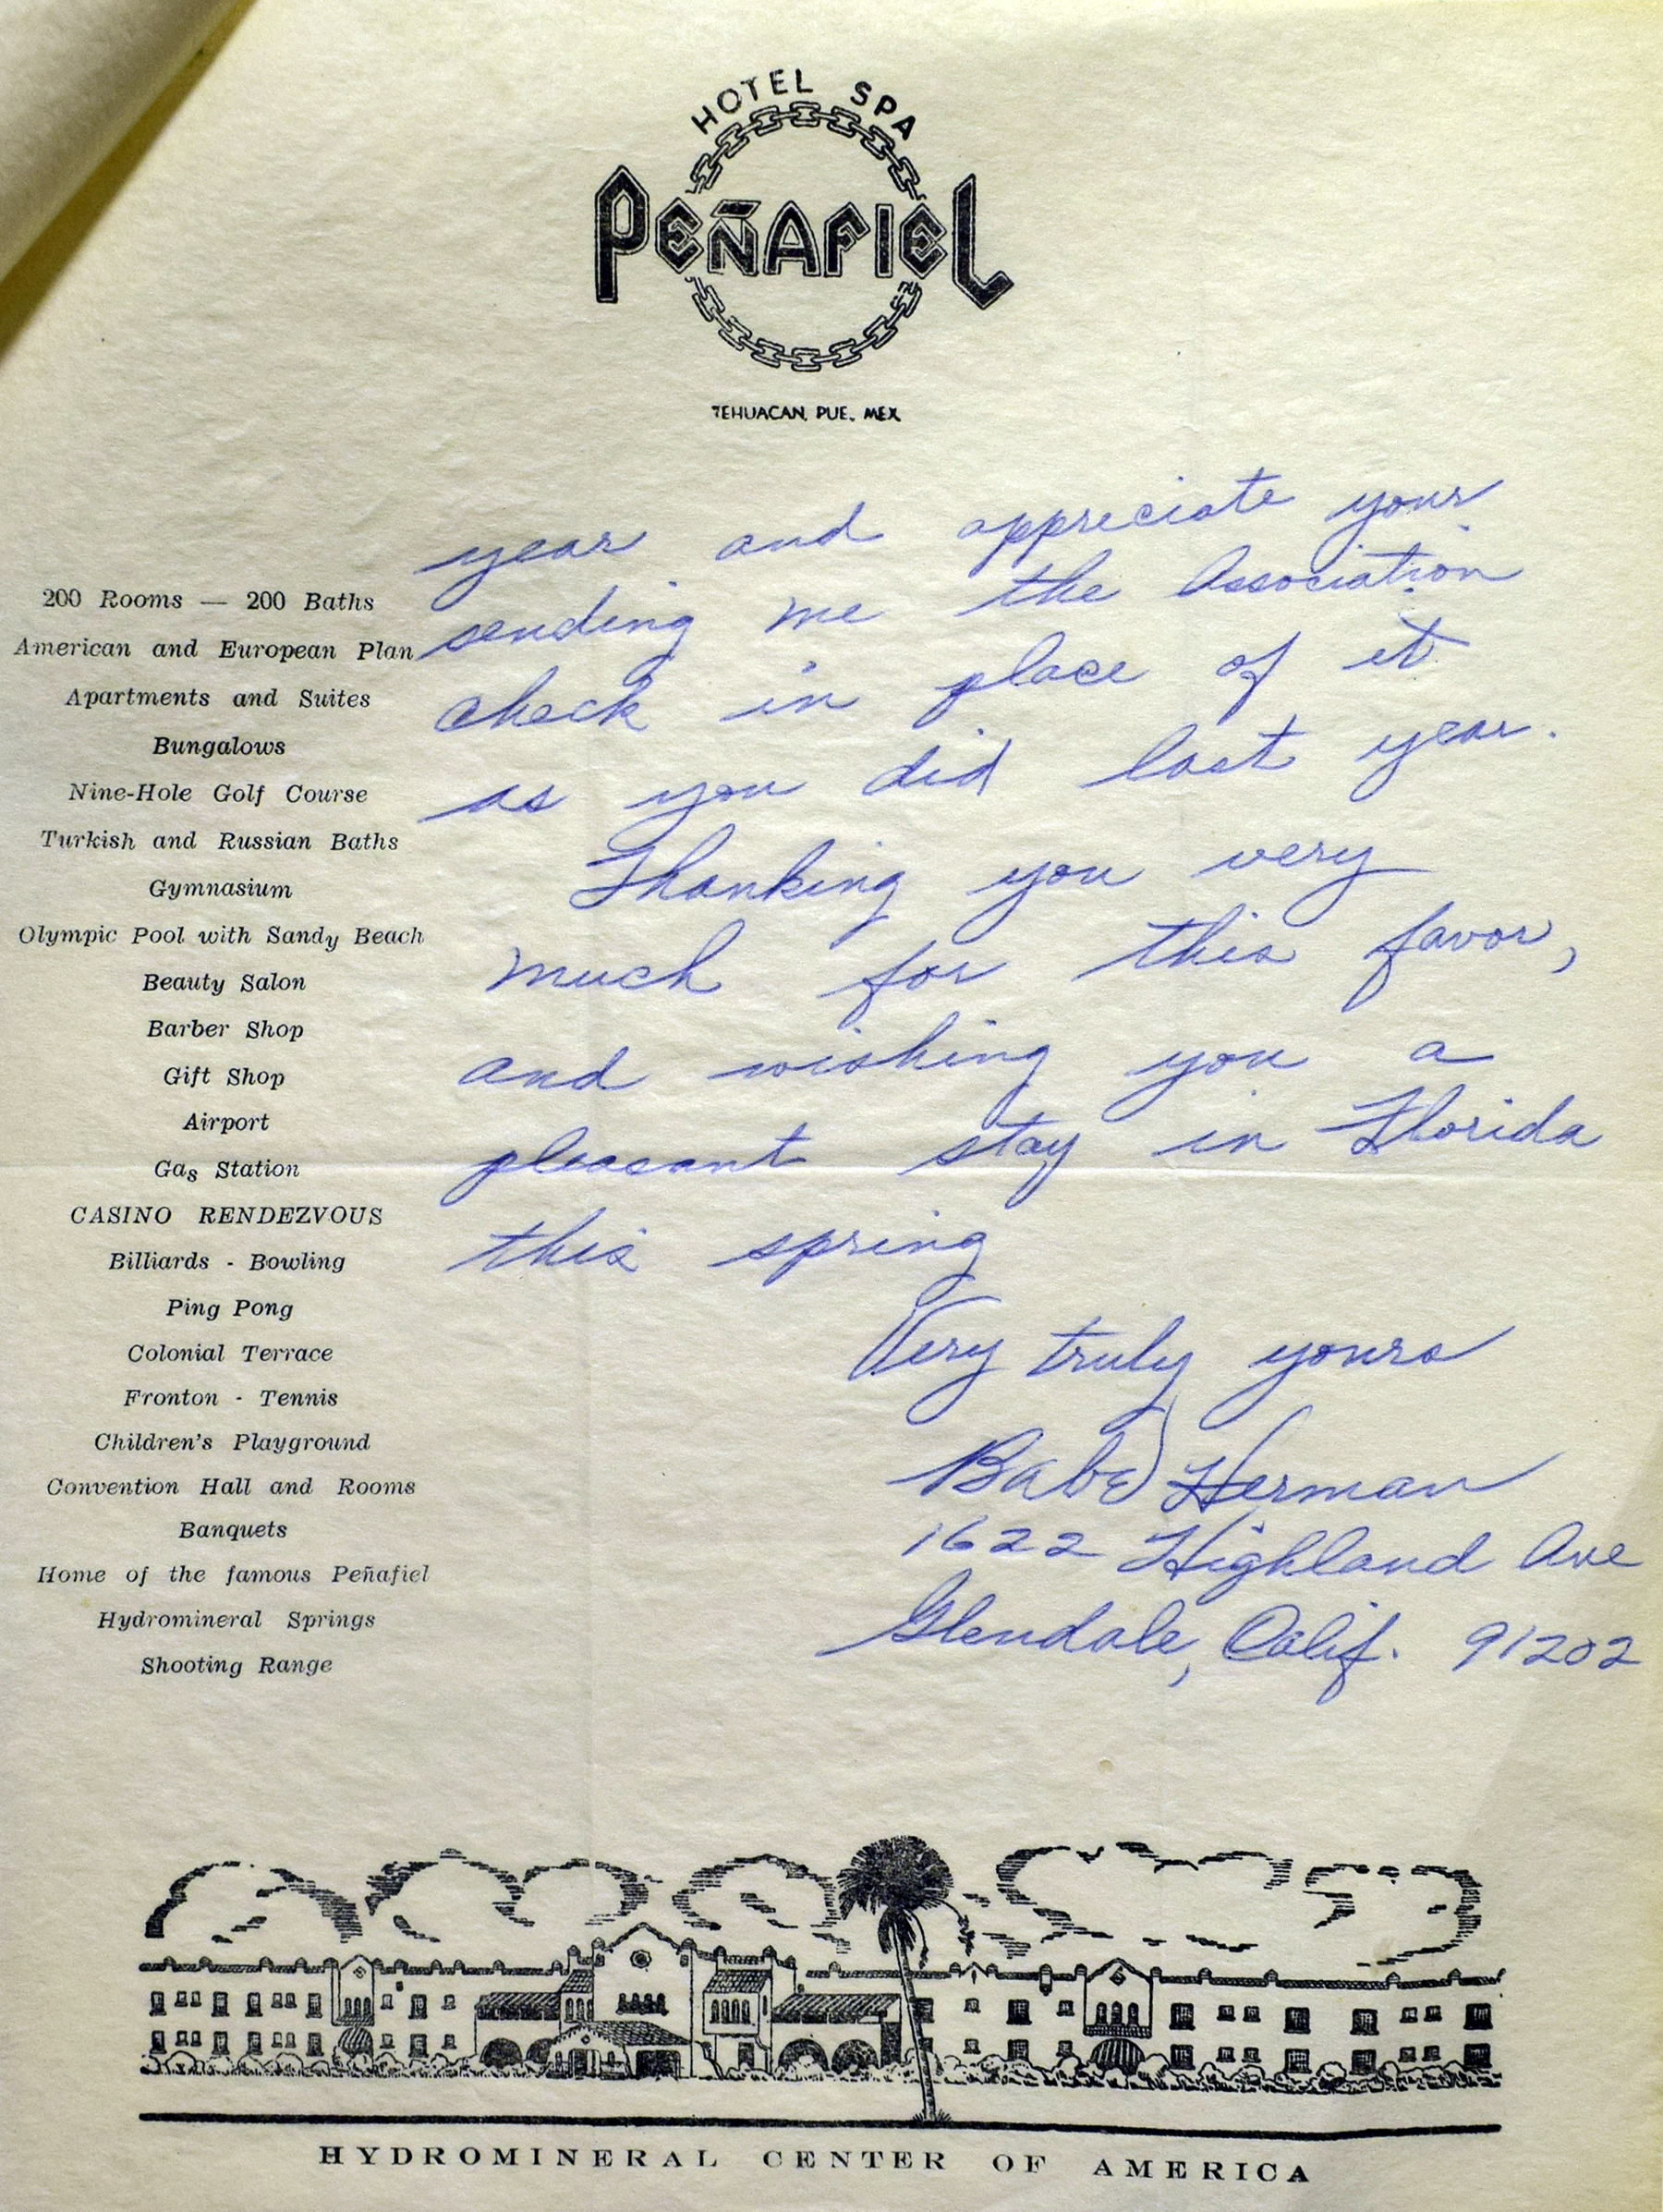 HOTEL SPA
PEÑAFIEL
TEHUACAN, PUE., MEX
200 Rooms — 200 Baths
American and European Plan
Apartments and Suites
Bungalows
Nine-Hole Golf Course
Turkish and Russian Baths
Gymnasium
Olympic Pool with Sandy Beach
Beauty Salon
Barber Shop
Gift Shop
Airport
Gas Station
CASINO RENDEZVOUS
Billiards - Bowling
Ping Pong
Colonial Terrace
Fronton - Tennis
Children's Playground
Convention Hall and Rooms
Banquets
Home of the famous Peñafiel
Hydromineral Springs
Shooting Range
year and appreciate your
sending me the Association
check in place of it
as you did last year.
Thanking you very
much for this favor,
and wishing you a
pleasant stay in Florida
this spring
Very truly yours
Babe Herman
1622 Highland Ave
Glendale, Calif. 91202
HYDROMINERAL CENTER OF AMERICA